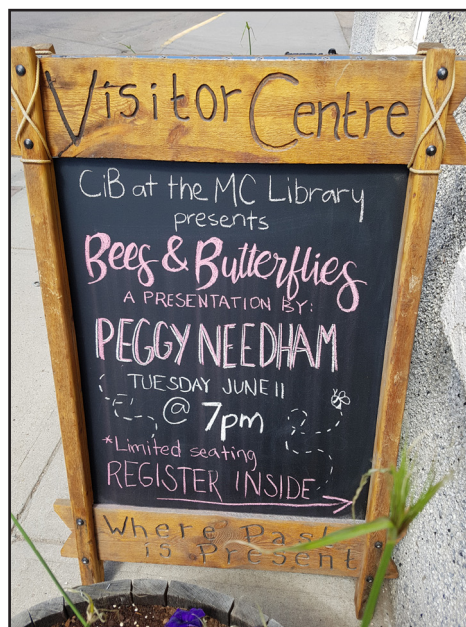 Visitor Centre
CiB at the MC Library
presents
Bees & Butterflies
A PRESENTATION BY:
PEGGY NEEDHAM
TUESDAY JUNE 11
@ 7pm
*Limited seating
REGISTER INSIDE
Where Past
is Present